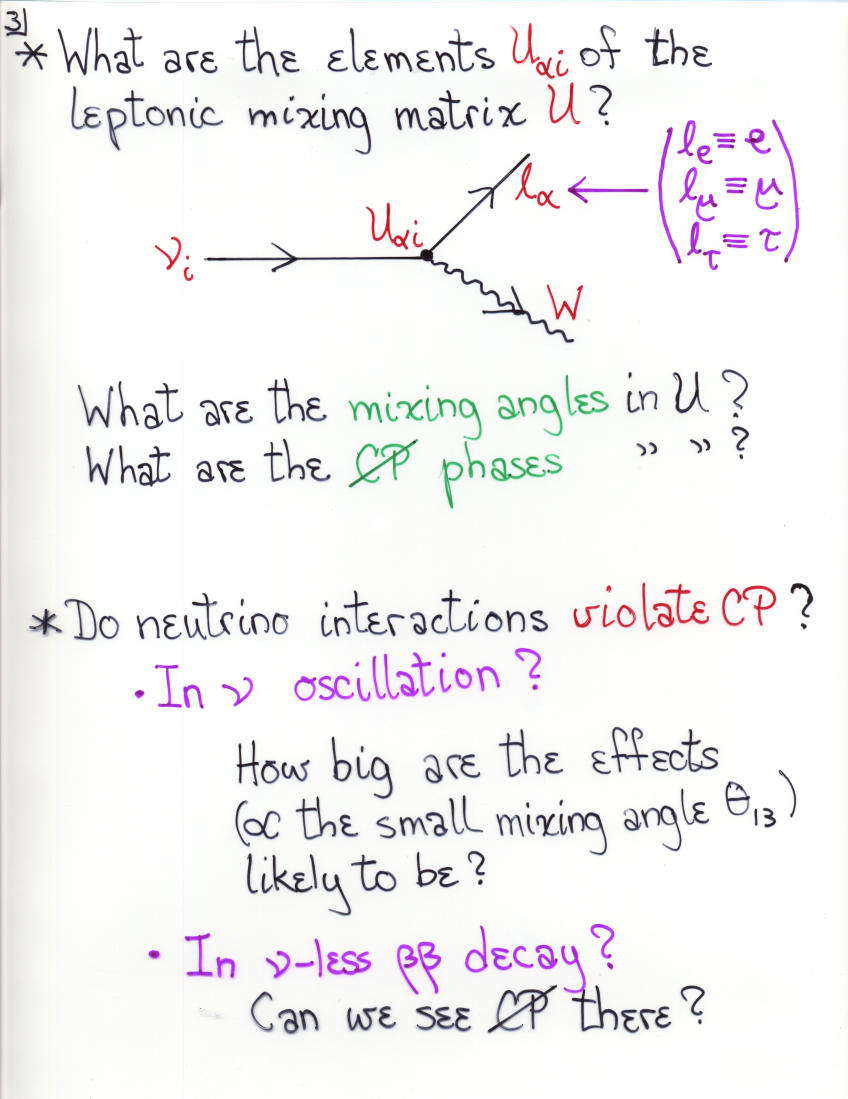 3)
* What are the elements Uαi of the
leptonic mixing matrix U?
le ≡ e
lα
lμ ≡ μ
lτ ≡ τ
Uαi
νi
W
What are the mixing angles in U?
What are the CP phases " " ?
* Do neutrino interactions violate CP?
• In ν oscillation?
How big are the effects
(∝ the small mixing angle θ13)
likely to be?
• In ν-less ββ decay?
Can we see CP there?